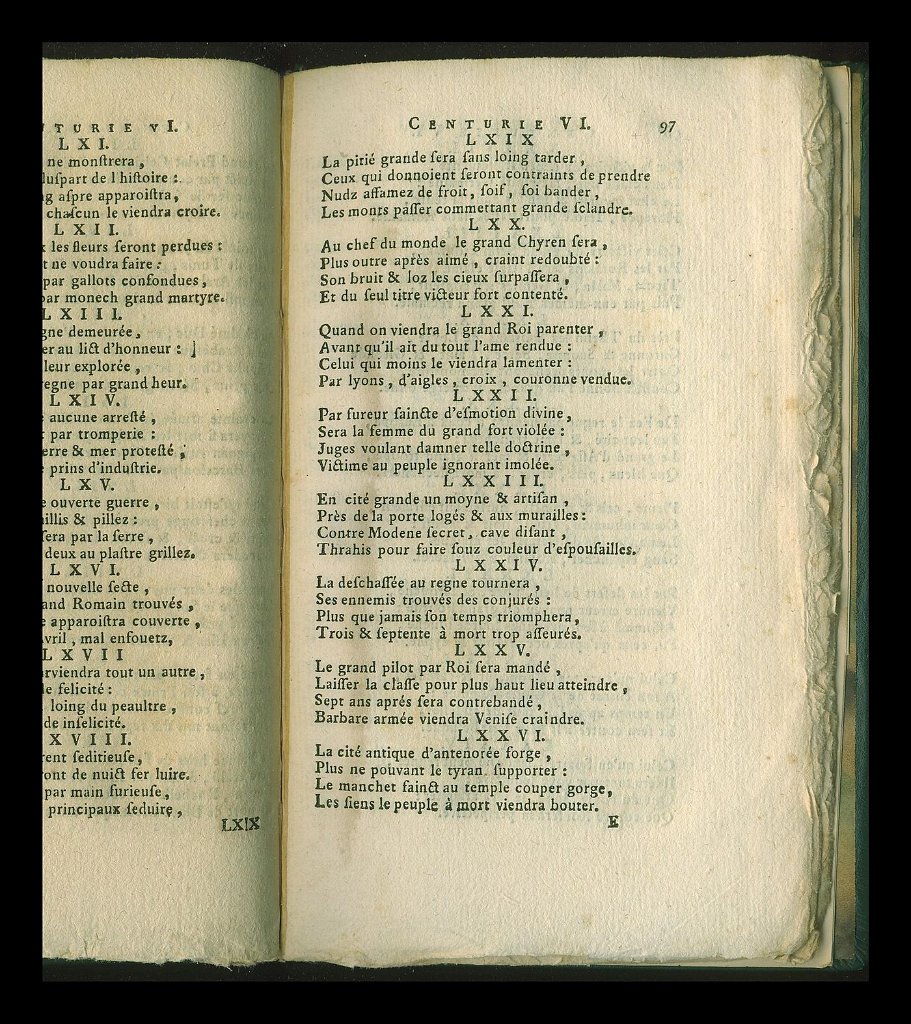 TURIE VI.
LXI.
ne monſtrera,
luſpart de l'hiſtoire :
g aſpre apparoiſtra,
chaſcun le viendra croire.
LXII.
les fleurs ſeront perdues :
t ne voudra faire :
par gallots confondues,
par monech grand martyre.
LXIII.
gne demeurée,
er au lict d'honneur :
leur explorée,
regne par grand heur.
LXIV.
aucune arreſté,
par tromperie :
erre & mer proteſté ;
prins d'induſtrie.
LXV.
e ouverte guerre,
aillis & pillez :
ſera par la ſerre,
deux au plaſtre grillez.
LXVI.
nouvelle ſecte,
and Romain trouvés,
e apparoiſtra couverte,
Avril, mal enfouetz,
LXVII
rviendra tout un autre,
de felicité :
loing du peaultre,
de infelicité.
XVIII.
rent ſeditieuſe,
ront de nuict fer luire.
par main furieuſe,
principaux ſeduire,
LXIX
CENTURIE VI. 97
LXIX
La pitié grande ſera ſans loing tarder,
Ceux qui donnoient ſeront contraints de prendre
Nudz affamez de froit, ſoif, ſoi bander,
Les monts paſſer commettant grande ſclandre.
LXX.
Au chef du monde le grand Chyren ſera,
Plus outre après aimé, craint redoubté :
Son bruit & loz les cieux ſurpaſſera,
Et du ſeul titre victeur fort contenté.
LXXI.
Quand on viendra le grand Roi parenter,
Avant qu'il ait du tout l'ame rendue :
Celui qui moins le viendra lamenter :
Par lyons, d'aigles, croix, couronne vendue.
LXXII.
Par fureur faincte d'eſmotion divine,
Sera la femme du grand fort violée :
Juges voulant damner telle doctrine,
Victime au peuple ignorant imolée.
LXXIII.
En cité grande un moyne & artiſan,
Près de la porte logés & aux murailes :
Contre Modene ſecret, cave diſant,
Thrahis pour faire ſouz couleur d'eſpouſailles.
LXXIV.
La deſchaſſée au regne tournera,
Ses ennemis trouvés des conjurés :
Plus que jamais ſon temps triomphera,
Trois & ſeptente à mort trop aſſeurés.
LXXV.
Le grand pilot par Roi ſera mandé,
Laiſſer la claſſe pour plus haut lieu atteindre,
Sept ans aprés ſera contrebandé,
Barbare armée viendra Veniſe craindre.
LXXVI.
La cité antique d'antenorée forge,
Plus ne pouvant le tyran ſupporter :
Le manchet fainct au temple couper gorge,
Les ſiens le peuple à mort viendra bouter.
E